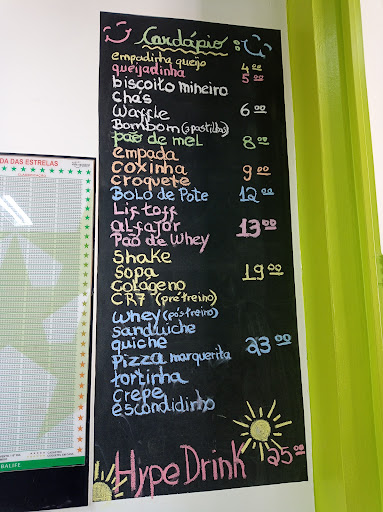 Cardápio:
empadinha queijo 4,00
queijadinha 5,00
biscoito mineiro
chás
Waffle 6,00
Bombom (3 pastilhas)
pão de mel 8,00
empada
coxinha 9,00
croquete
Bolo de Pote 12,00
Liftoff
alfajor 13,00
Pão de Whey
Shake
Sopa 19,00
Colageno
CR7 (pré treino)
Whey (pós-treino)
Sanduiche
quiche 23,00
Pizza marguerita
tortinha
Crepe
escondidinho
Hype Drink 25,00
DA DAS ESTRELAS
BALIFE